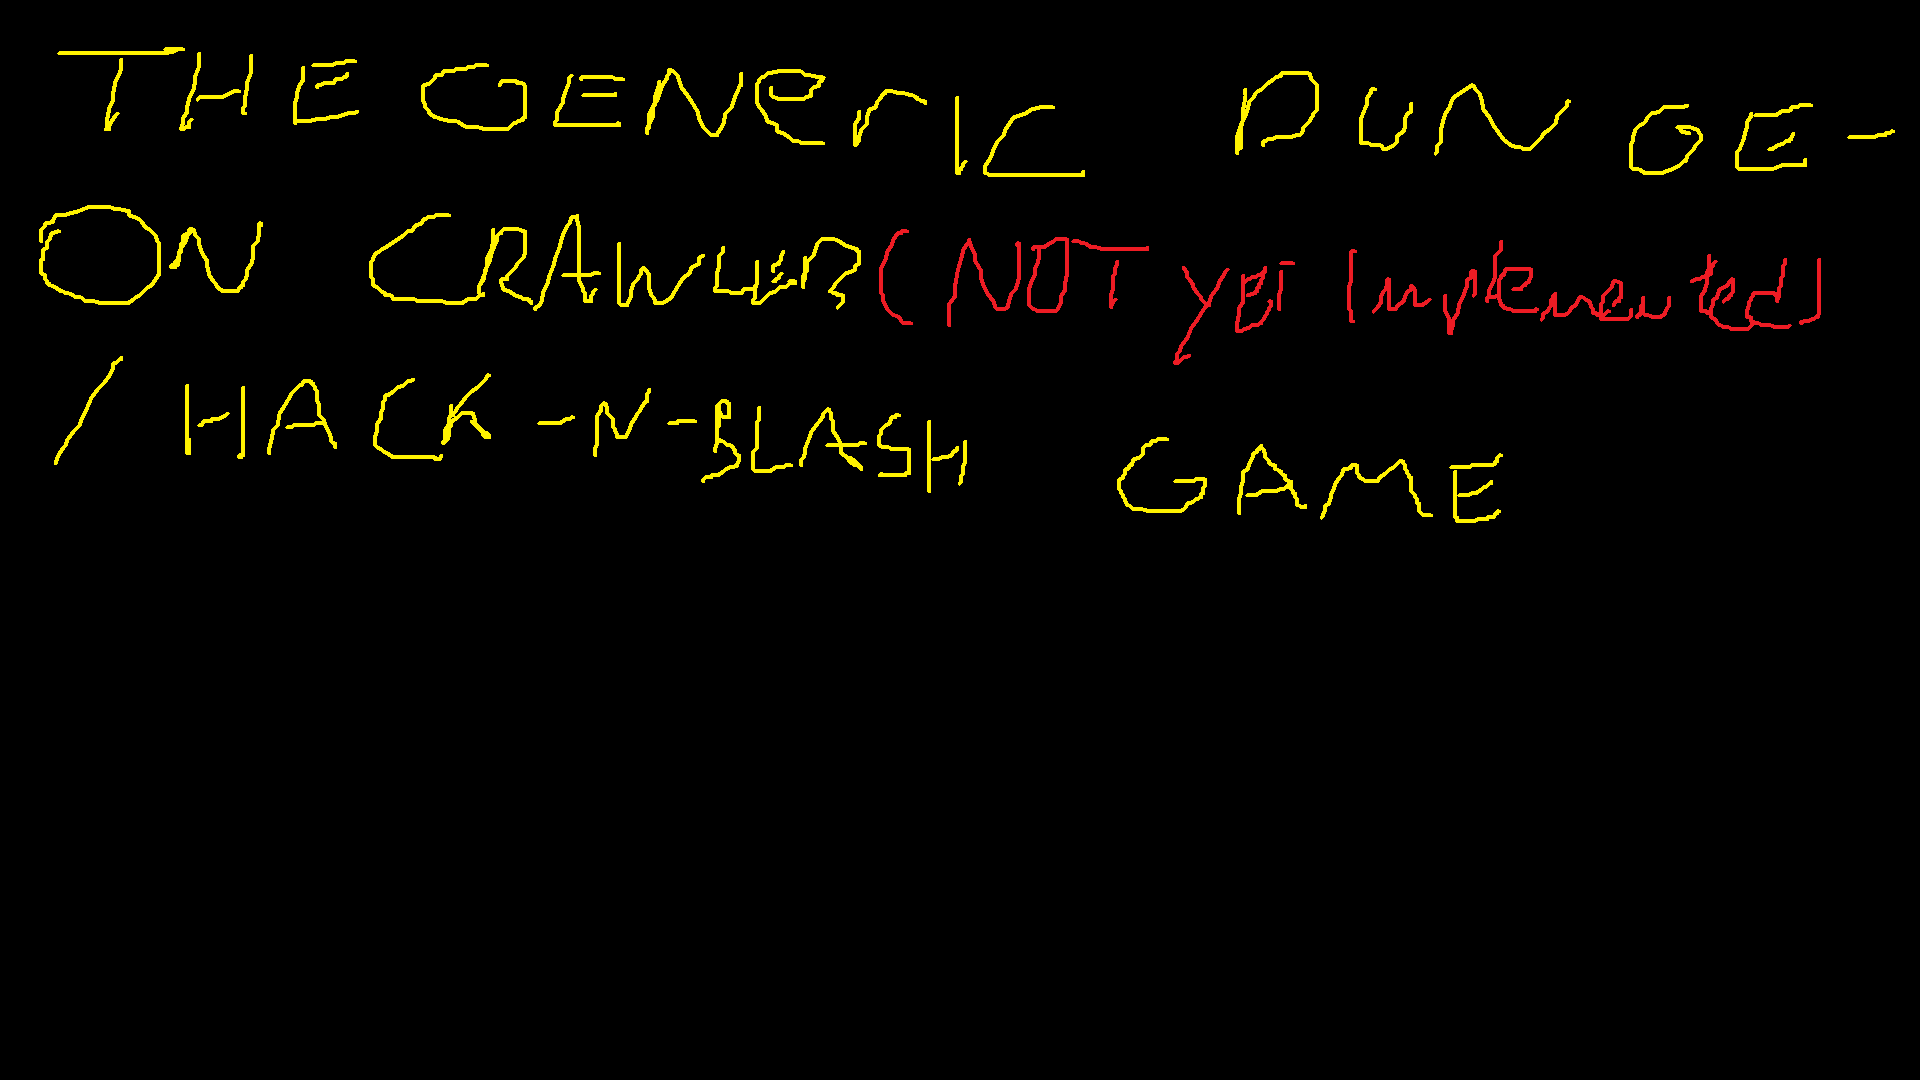 THE GENEric DUNGE-
ON CRAWLER (NOT yet Implemented)
/ HACK-N-BLASH GAME